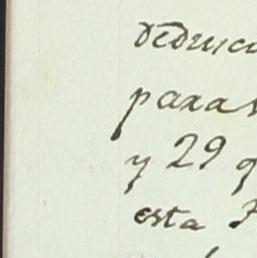 deduci
para
y 29 q
esta